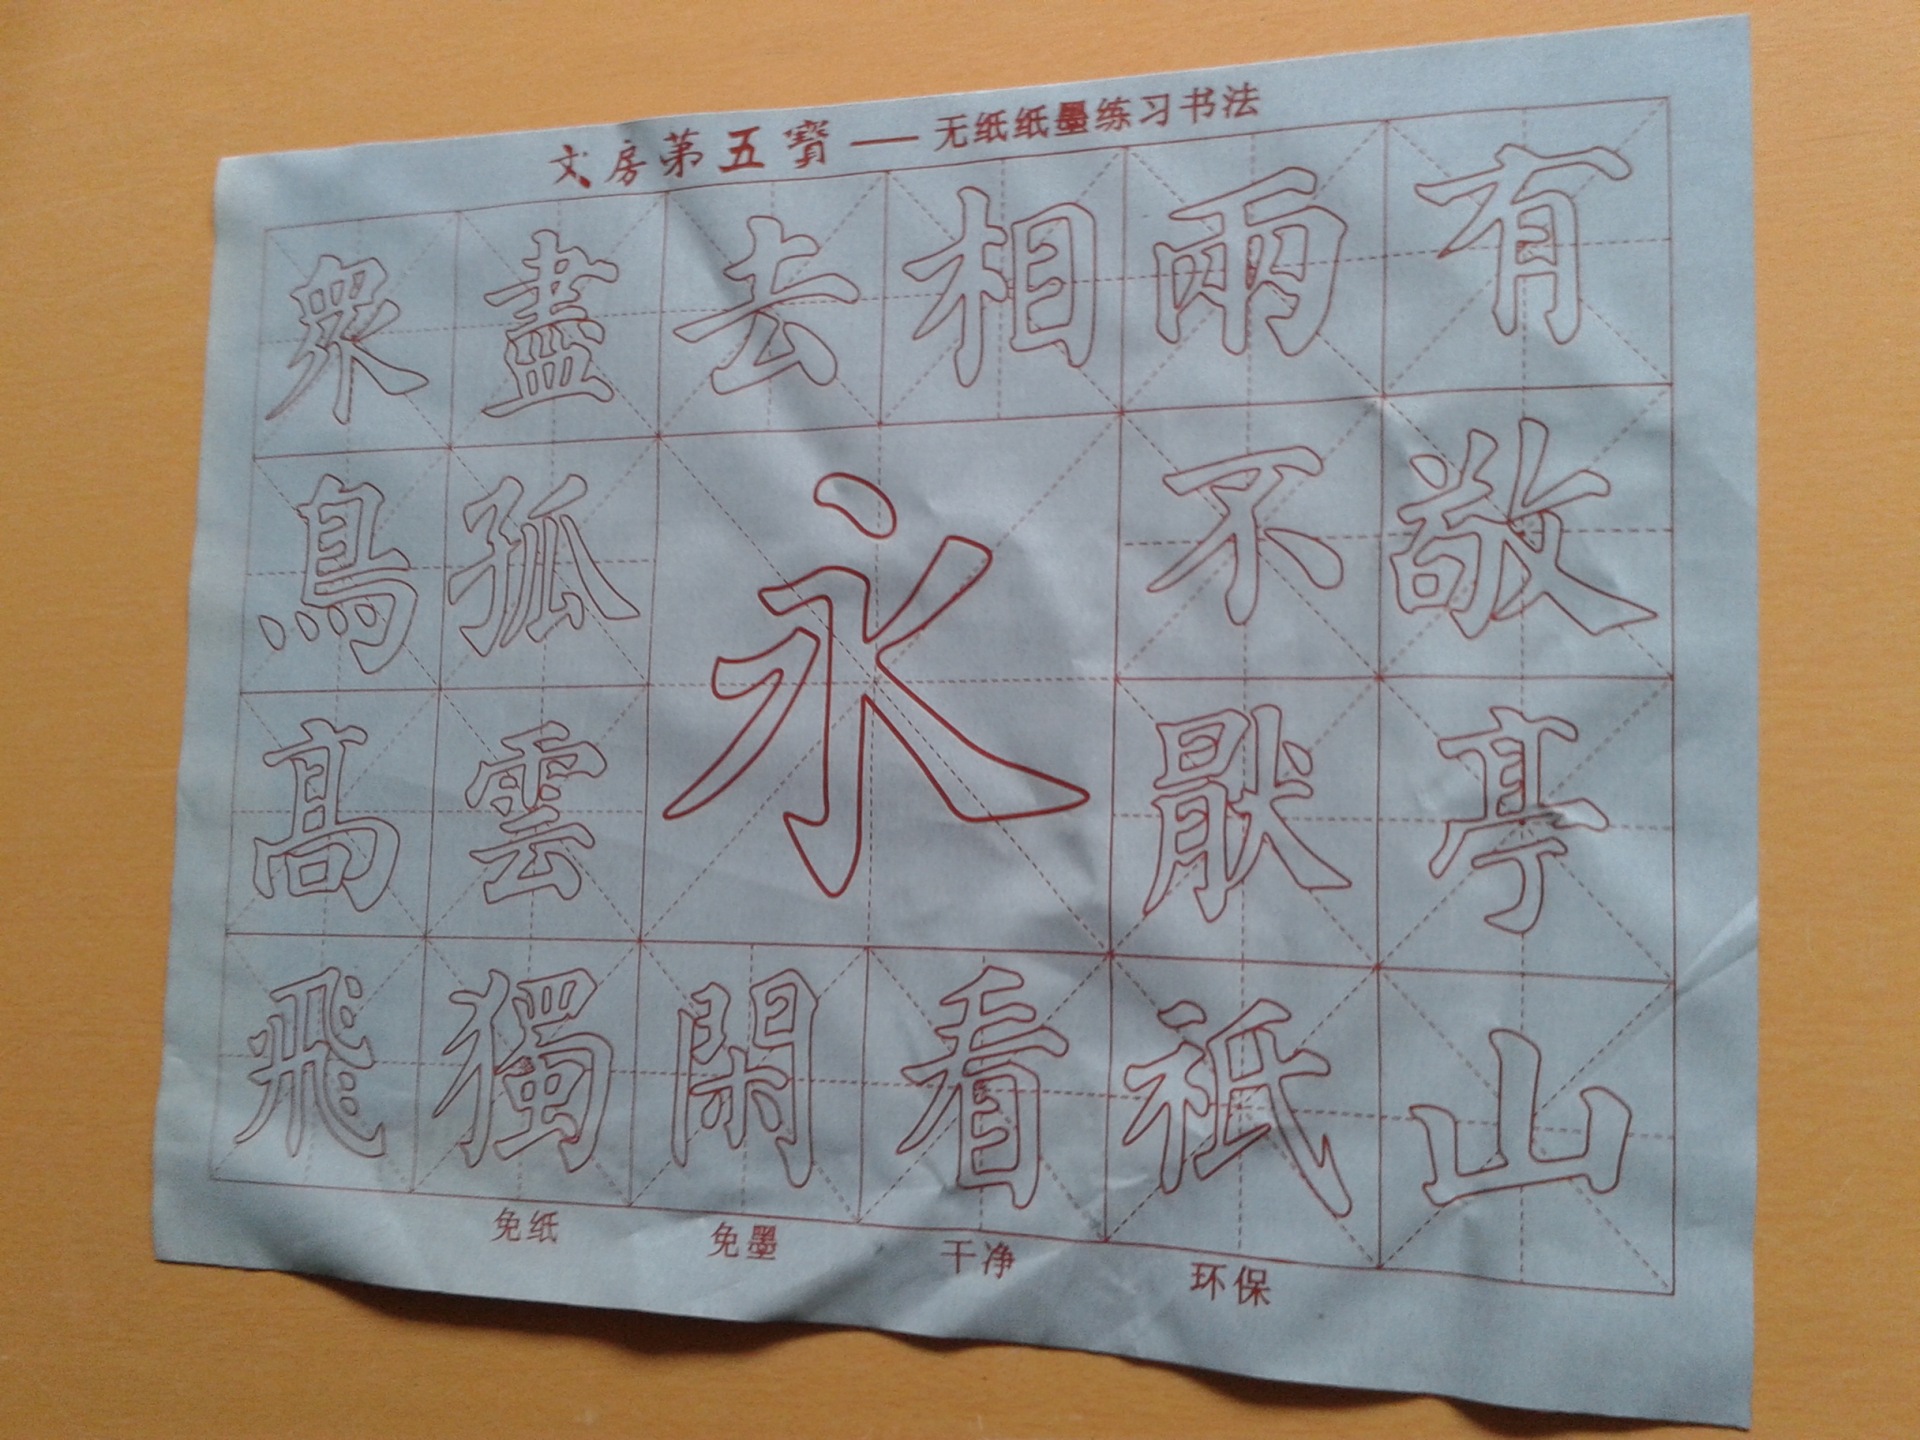 文房第五寶——无纸纸墨练习书法
眾鳥高飛
盡孤雲獨
去閑
永
相看
兩不猒祇
有敬亭山
免纸 免墨 干净 环保